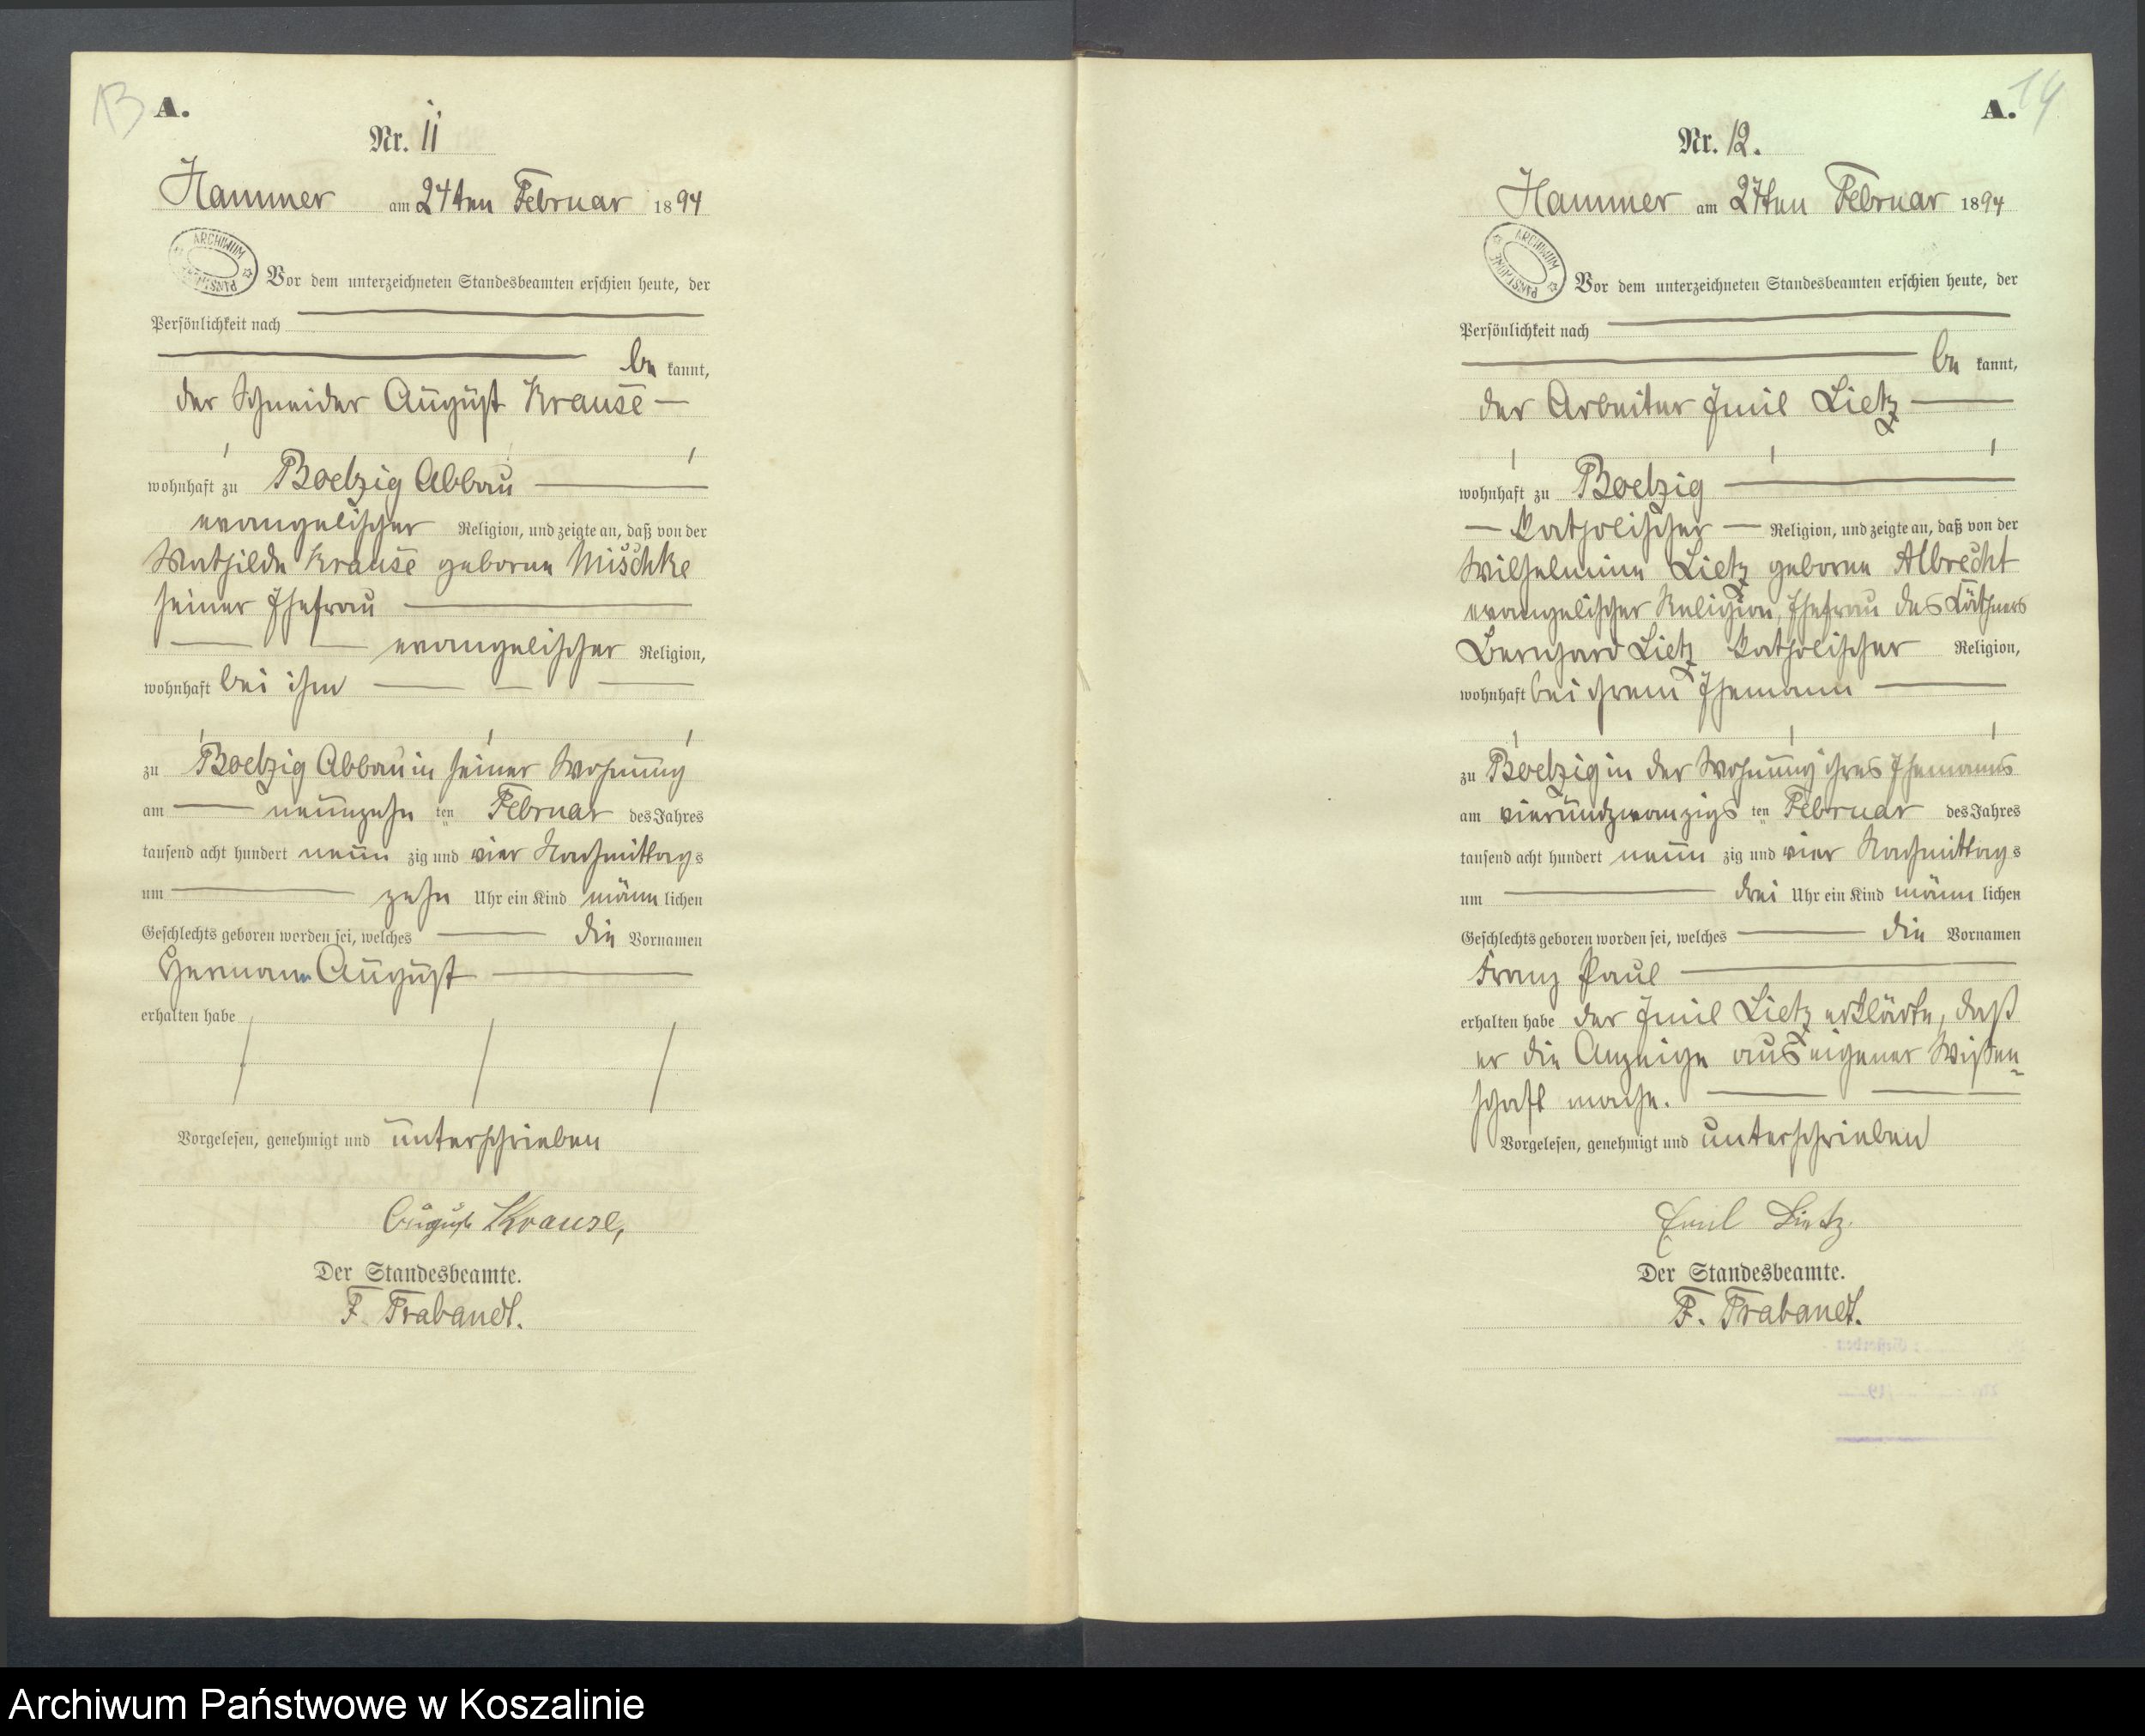 13 A.
Nr. 11
Hammer am 24ten Februar 1894
ARCHIWUM PAŃSTWOWE
Vor dem unterzeichneten Standesbeamten erschien heute, der
Persönlichkeit nach
be kannt,
der Schneider August Krause
wohnhaft zu Boetzig Abbau
evangelischer Religion, und zeigte an, daß von der
Mathilde Krause geborne Mischke
seiner Ehefrau
evangelischer Religion,
wohnhaft bei ihm
zu Boetzig Abbau in seiner Wohnung
am neunzehn ten Februar des Jahres
tausend acht hundert neun zig und vier Nachmittags
um zehn Uhr ein Kind männ lichen
Geschlechts geboren worden sei, welches die Vornamen
Hermann August
erhalten habe
Vorgelesen, genehmigt und unterschrieben
August Krause,
Der Standesbeamte.
F. Trabandt.
A. 14
Nr. 12.
Hammer am 27ten Februar 1894
ARCHIWUM PAŃSTWOWE
Vor dem unterzeichneten Standesbeamten erschien heute, der
Persönlichkeit nach
be kannt,
der Arbeiter Emil Lietz
wohnhaft zu Boetzig
katholischer Religion, und zeigte an, daß von der
Wilhelmine Lietz geborne Albrecht
evangelischer Religion, Ehefrau des Käthners
Bernhard Lietz katholischer Religion,
wohnhaft bei ihrem Ehemann
zu Boetzig in der Wohnung ihres Ehemanns
am vierundzwanzigs ten Februar des Jahres
tausend acht hundert neun zig und vier Nachmittags
um drei Uhr ein Kind männ lichen
Geschlechts geboren worden sei, welches die Vornamen
Franz Paul
erhalten habe der Emil Lietz erklärte, daß
er die Anzeige aus eigener Wissen-
schaft mache.
Vorgelesen, genehmigt und unterschrieben
Emil Lietz.
Der Standesbeamte.
F. Trabandt.
Archiwum Państwowe w Koszalinie